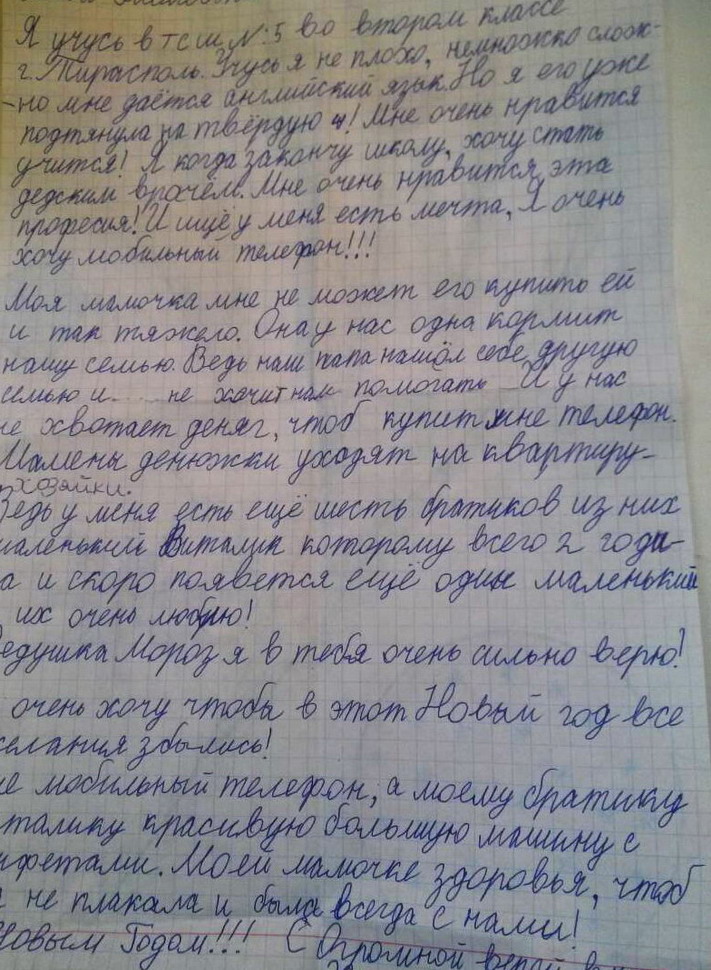 Я учусь в тсш №:5 во втором классе
г. Тирасполь. Учусь я не плохо, немножко слож-
-но мне даётся английский язык. Но я его уже
подтянула на твёрдую 4! Мне очень нравится
учится! Я когда закончу школу, хочу стать
дедским врачём. Мне очень нравится эта
професия! И ищё у меня есть мечта, Я очень
хочу мобильный телефон!!!
Моя мамочка мне не может его купить ей
и так тяжело. Она у нас одна кормит
нашу семью. Ведь наш папа нашёл себе другую
семью и.... не хочит нам помогать И у нас
не хвотает деняг, чтоб купит мне телефон.
Мамены денюжки уходят на квартиру-
хозяйки.
Ведь у меня есть ещё шесть братиков из них
маленький Виталик которому всего 2 годи-
а и скоро появется ещё один маленький
их очень люблю!
Дедушка Мороз я в тебя очень сильно верю!
очень хочу чтобы в этот Новый год все
желания збылись!
не мобильный телефон, а моему братику
талику красивую большую машину с
нфетами. Моей мамочке здоровья, чтоб
не плакала и была всегда с нами!
Новым Годом!!! С Огромной верой в